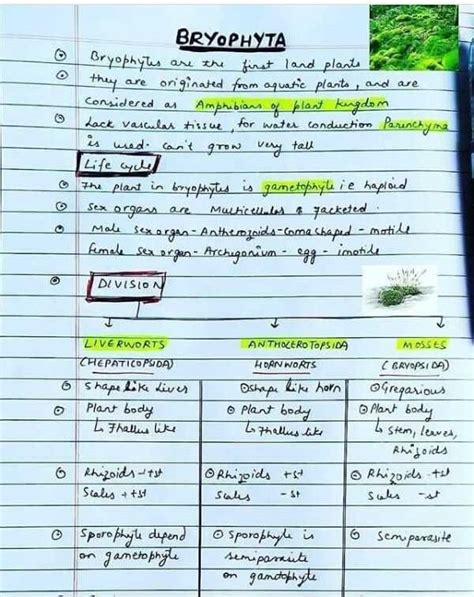 BRYOPHYTA
Bryophytes are the first land plants
they are originated from aquatic plants, and are
considered as Amphibians of plant kingdom
Lack vascular tissue, for water conduction Parenchyma
is used. can't grow very tall
Life cycle
The plant in bryophytes is gametophyte i.e haploid
Sex organs are Multicellular & Jacketed.
Male sex organ - Antherozoids - Comashaped - motile
female sex organ - Archegonium - egg - imotile
DIVISION
LIVERWORTS ANTHOCEROTOPSIDA MOSSES
(HEPATICOPSIDA) HORNWORTS (BRYOPSIDA)
Shape like liver Shape like horn Gregarious
Plant body Plant body Plant body
↳ Thallus like ↳ Thallus like ↳ Stem, leaves,
Rhizoids
Rhizoids +st Rhizoids +st Rhizoids +st
Scales + +st Scales -st Scales -st
Sporophyte depend Sporophyte is Semiparasite
on gametophyte semiparasite
on gametophyte